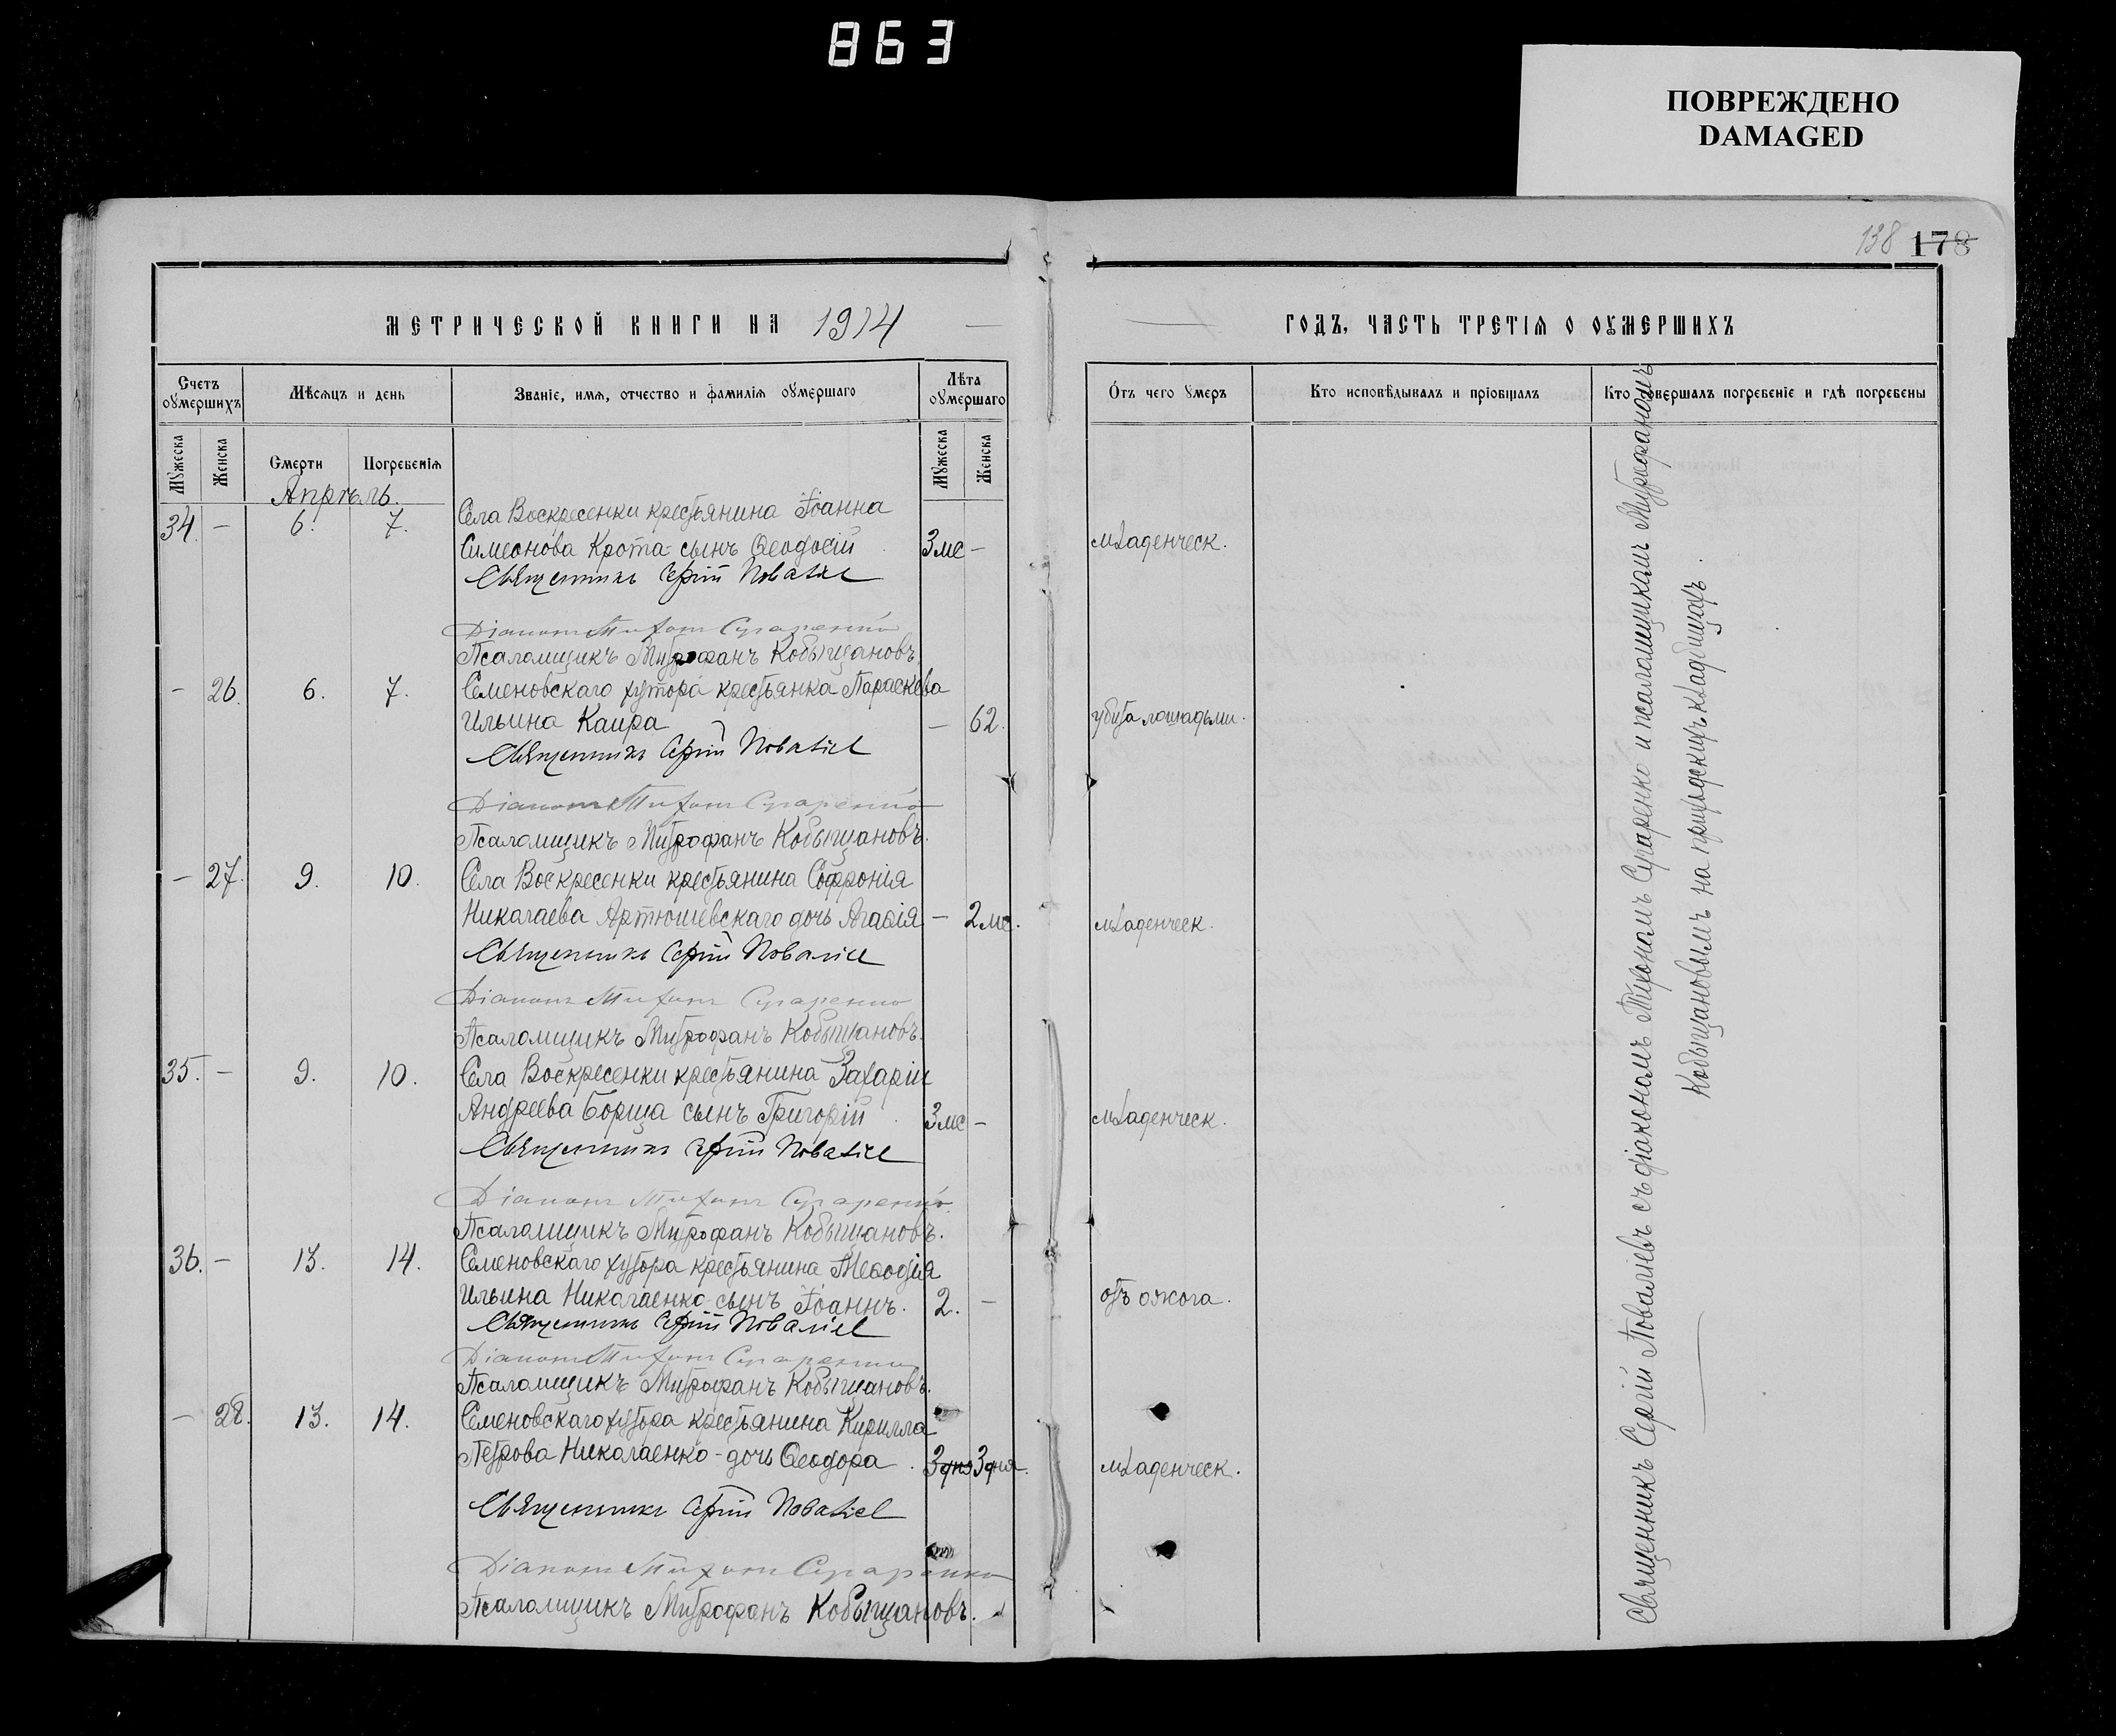 863
ПОВРЕЖДЕНО
DAMAGED
138 178
МЕТРИЧЕСКОЙ КНИГИ НА 1914
ГОДЪ, ЧАСТЬ ТРЕТІѦ О ОУМЕРШИХЪ
Счетъ оумершихъ
Мѣсяцъ и день
Званіе, имѧ, отчество и фамиліѧ оумершаго
Лѣта оумершаго
Отъ чего умеръ
Кто исповѣдывалъ и пріобщалъ
Кто совершалъ погребеніе и гдѣ погребены
Мужеска
Женска
Смерти
Погребеніѧ
Мужеска
Женска
Апрѣль.
34. - 6. 7. Села Воскресенки крестьянина Іоанна
Симеонова Крота сынъ Ѳеодосій 3 мс - младенческ.
Священникъ Сергій Поваліев
Діаконъ Тихонъ Сухаренко
Псаломщикъ Митрофанъ Кобыщановъ.
- 26. 6. 7. Семеновскаго хутора крестьянка Параскева
Ильина Каира - 62. убита лошадьми.
Священникъ Сергій Поваліев
Діаконъ Тихонъ Сухаренко
Псаломщикъ Митрофанъ Кобыщановъ.
- 27. 9. 10. Села Воскресенки крестьянина Софронія
Николаева Артюшевскаго дочь Агафія - 2 мс. младенческ.
Священникъ Сергій Поваліев
Діаконъ Тихонъ Сухаренко
Псаломщикъ Митрофанъ Кобыщановъ.
35. - 9. 10. Села Воскресенки крестьянина Захаріи
Андреева Борща сынъ Григорій 3 мс - младенческ.
Священникъ Сергій Поваліев
Діаконъ Тихонъ Сухаренко
Псаломщикъ Митрофанъ Кобыщановъ.
36. - 13. 14. Семеновскаго хутора крестьянина Меѳодія
Ильина Николаенко сынъ Іоаннъ. 2. - отъ ожога.
Священникъ Сергій Поваліев
Діаконъ Тихонъ Сухаренко
Псаломщикъ Митрофанъ Кобыщановъ.
- 28. 13. 14. Семеновскаго хутора крестьянина Кирилла
Петрова Николаенко - дочь Ѳеодора 3 дня 3 дня. младенческ.
Священникъ Сергій Поваліев
Діаконъ Тихонъ Сухаренко
Псаломщикъ Митрофанъ Кобыщановъ.
Священникъ Сергій Поваліевъ съ діакономъ Тихономъ Сухаренко и псаломщикомъ Митрофаномъ
Кобыщановымъ на приходскихъ кладбищахъ.